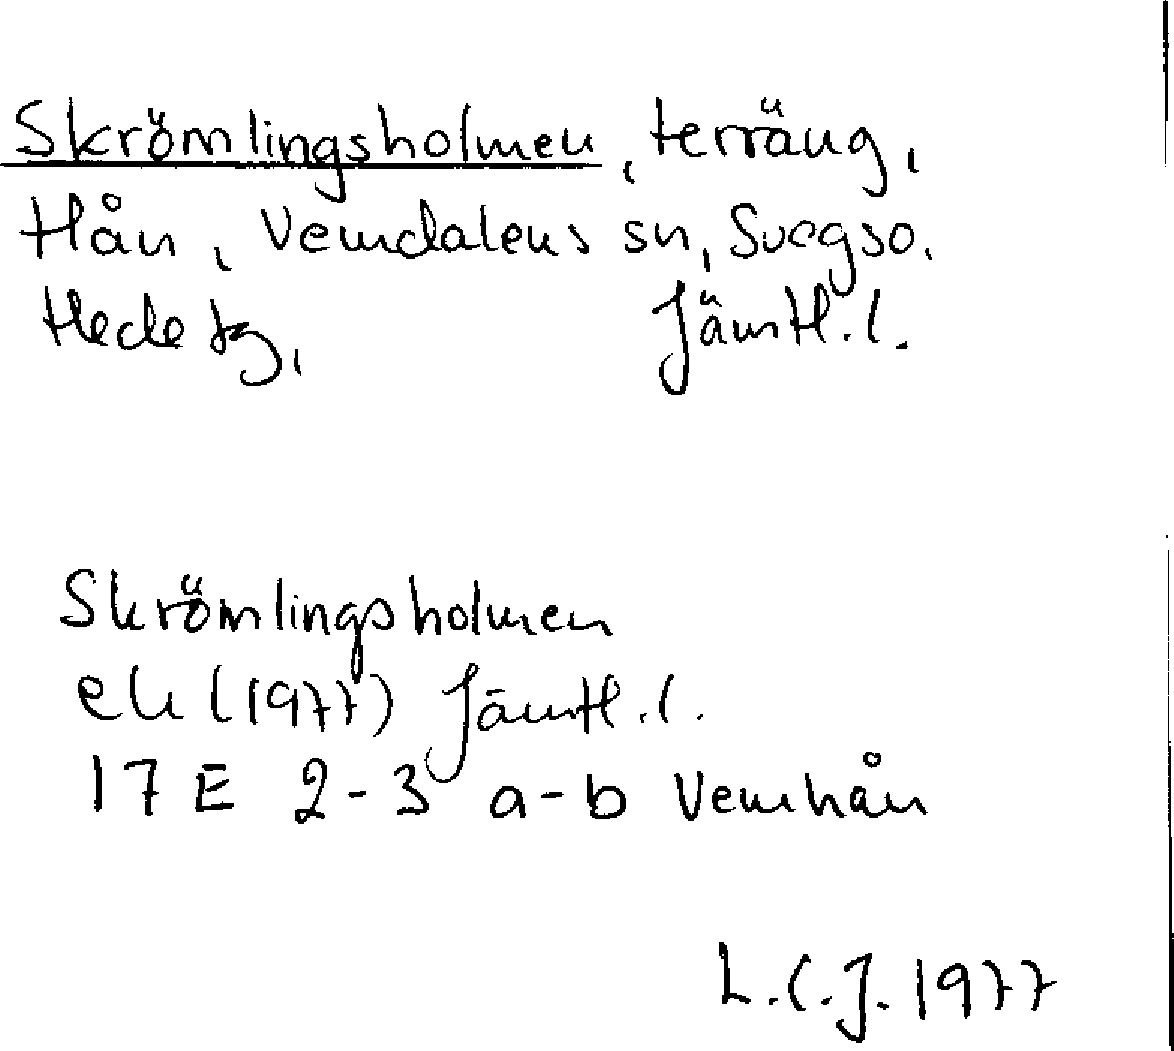 Skrömlingsholmen, terräng,
Hån, Vemdalens sn, Svegs o.
Hede tg, Jämtl. l.
Skrömlingsholmen
ek (1977) Jämtl. l.
17 E 2-3 a-b Vemhån
L.C.J. 1977